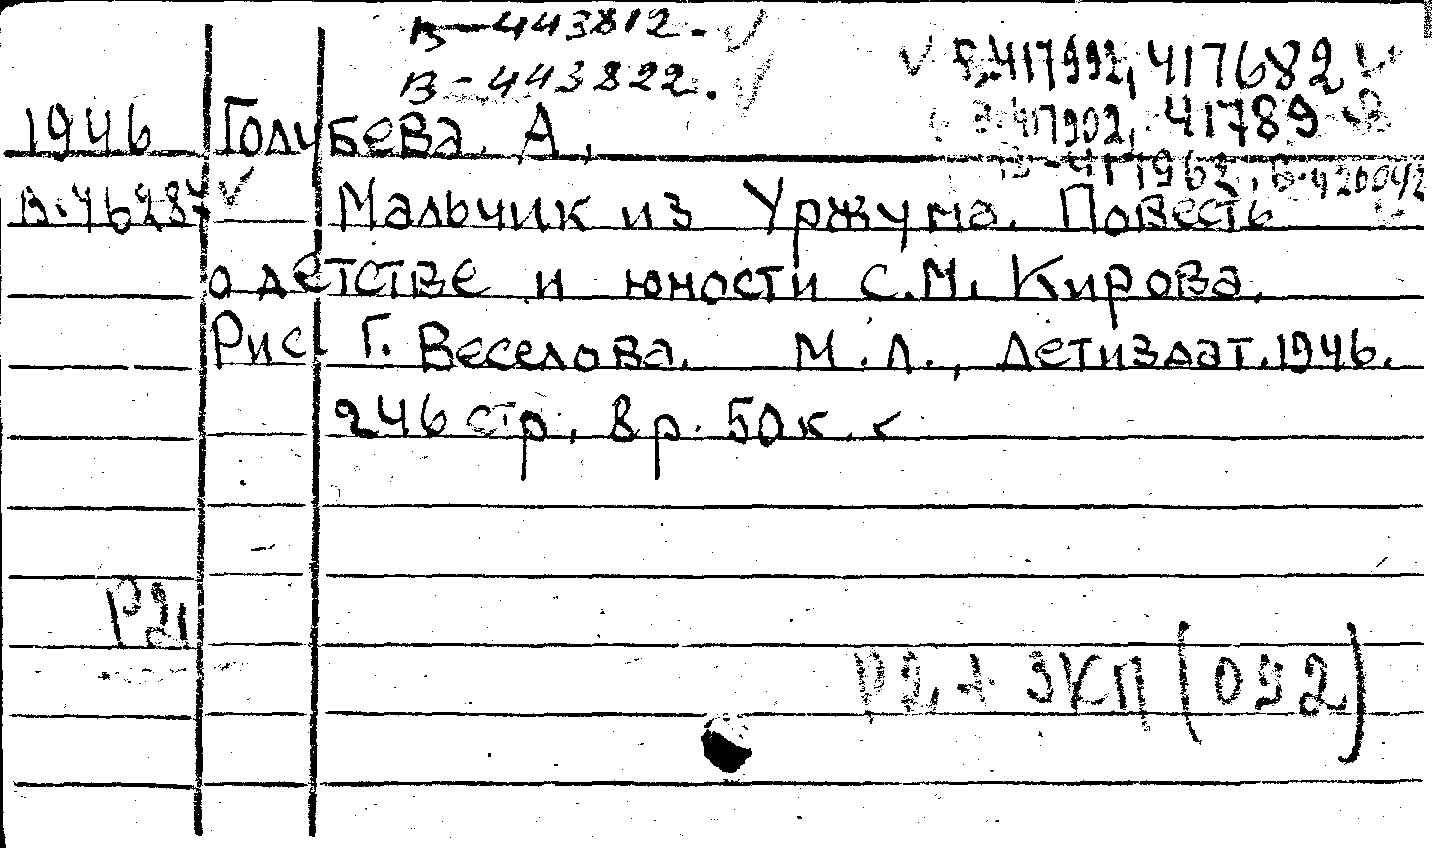 В-443812.
В-443822.
417992, 417682
417902, 41789
1946 Голубева, А.
Мальчик из Уржума. Повесть
о детстве и юности С.М. Кирова.
Рис. Г. Веселова. М.Л., Детиздат. 1946.
246 стр. 8 р. 50 к.
Р21
Р2